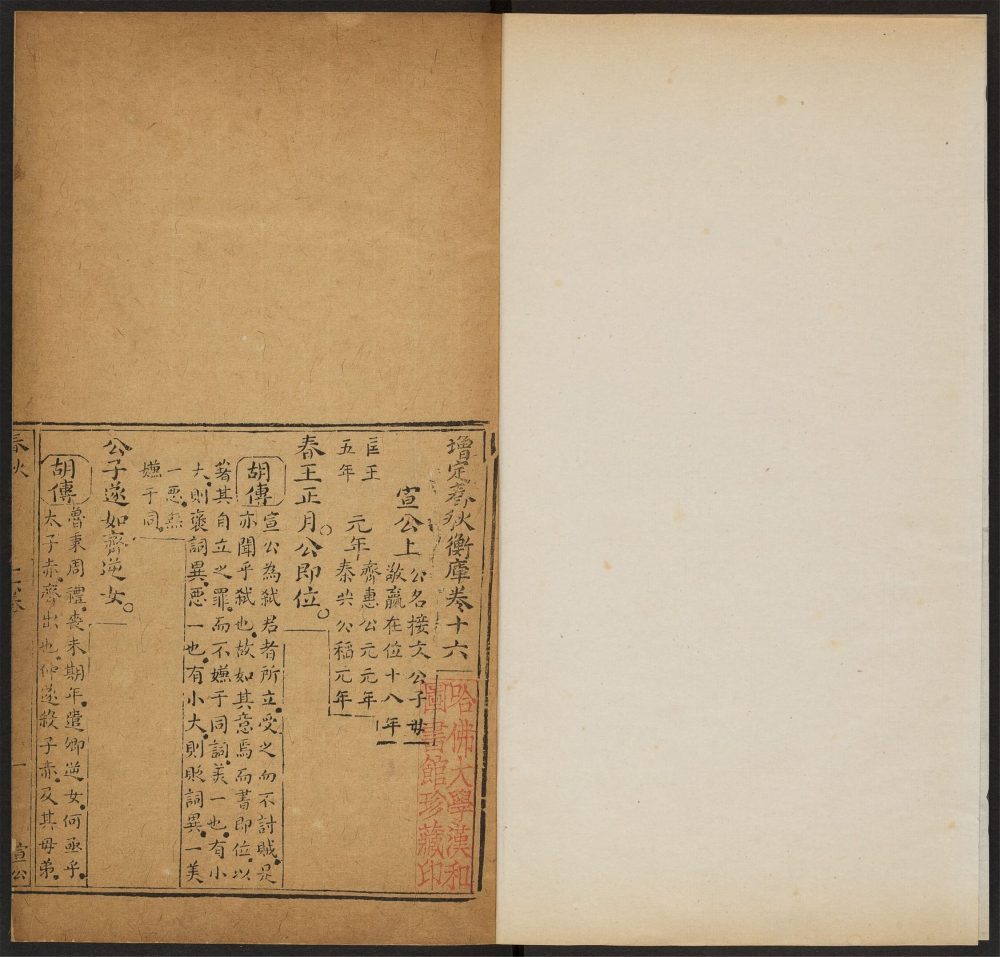 增定春秋衡庫卷十六
哈佛大學漢和
圖書館珍藏印
宣公上
公名接文公子母
敬嬴在位十八年
匡王
五年
元年
齊惠公元元年
秦共公稻元年
春王正月。公即位。
胡傳
宣公為弒君者所立受之而不討賊是
亦聞乎弒也故如其意焉而書即位以
著其自立之罪而不嫌于同詞美一也有小
大則褒詞異惡一也有小大則貶詞異一美
一惡無
嫌于同
公子遂如齊逆女。
胡傳
魯秉周禮喪未期年遣卿逆女何亟乎
太子赤齊出也仲遂殺子赤及其母弟
春秋
十六卷
一
宣公